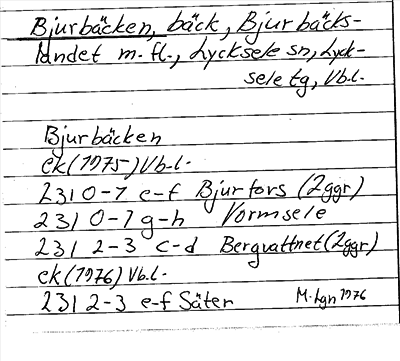 Bjurbäcken, bäck, Bjurbäcks-
landet m. fl., Lycksele sn, Lyck-
sele tg, Vb.l.
Bjurbäcken
ek (1975) Vb.l.
231 0-1 e-f Bjurfors (2ggr)
231 0-1 g-h Vormsele
231 2-3 c-d Bergvattnet (2ggr)
ek (1976) Vb.l.
231 2-3 e-f Säter M. Lgn 1976